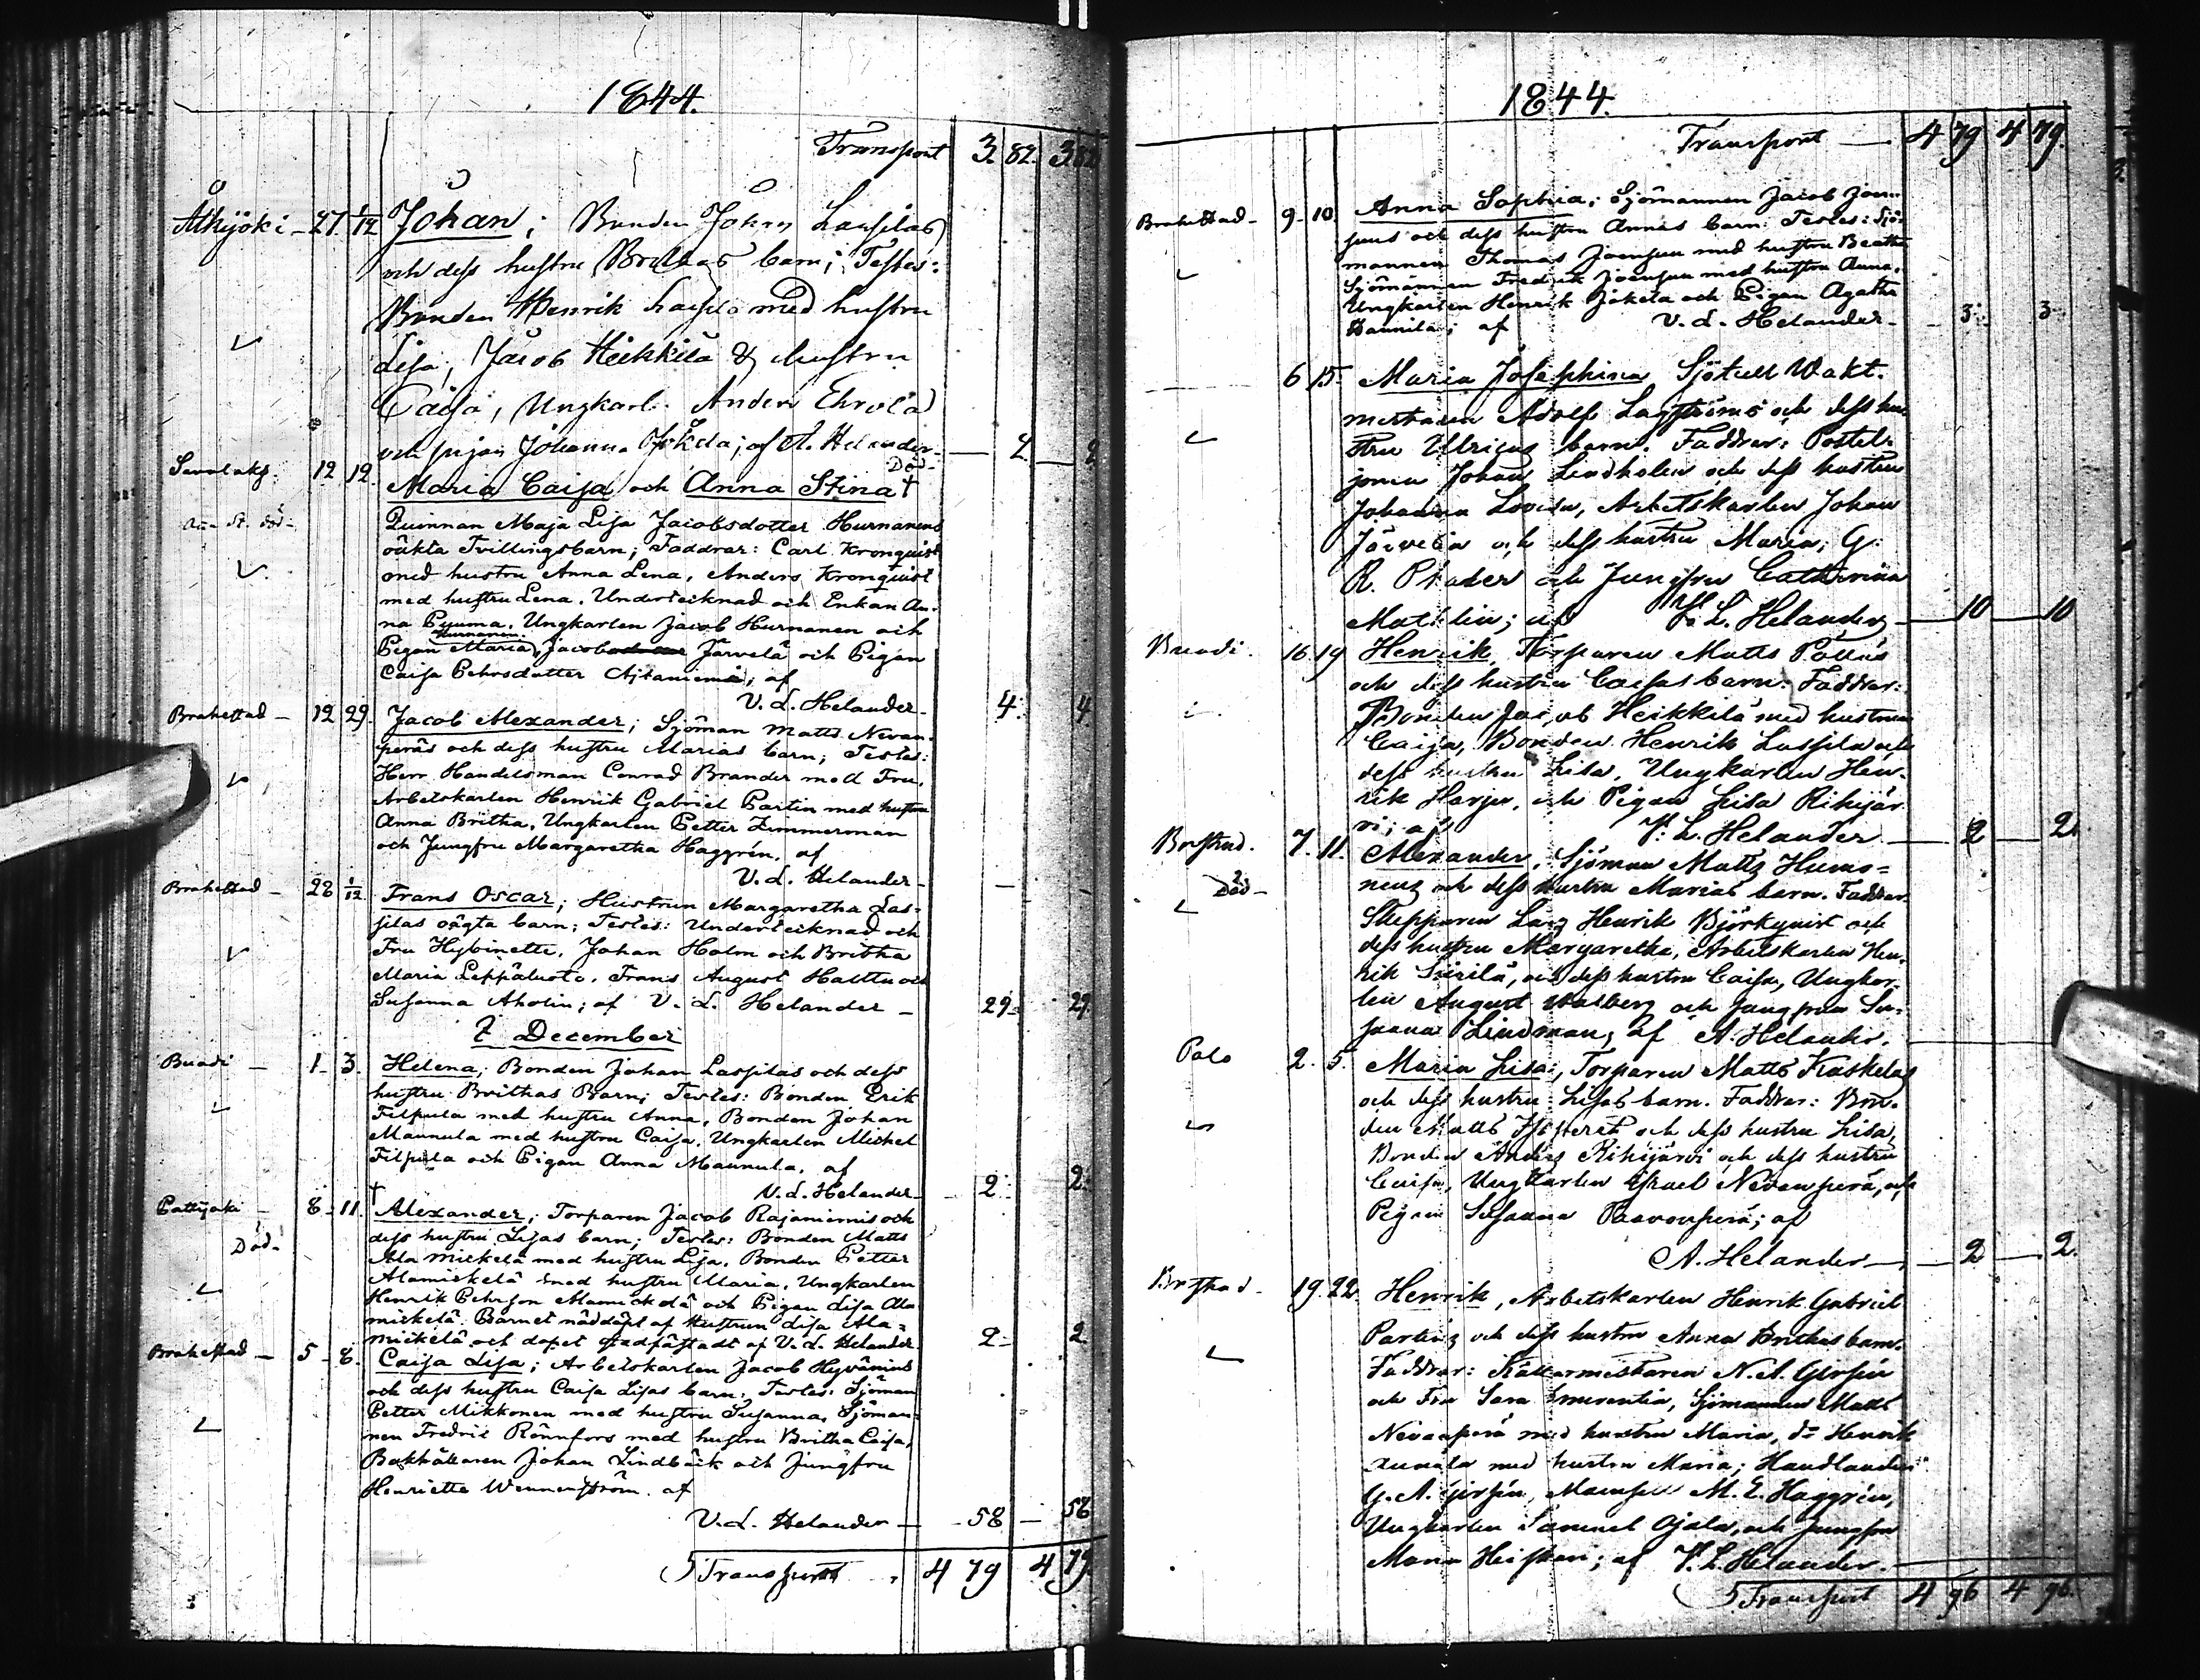 1844.
Transport 3 82. 3 82
Åkijoki - 27. 1/12 Johan; Bonden Johan Lassilas
och dess hustru Brithas barn; Testes:
Bonden Henrik Lassila med hustru
Lisa, Jacob Heikkilä & hustru
Caisa, Ungkarl. Anders Ehrola
och pigan Johanna Jokela; af A. Helander - 2. 2
Savolaks. 12 19. Maria Caisa och Anna Stina † Död-
Anna St. död- Quinnan Maja Lisa Jacobsdotter Hurnanens
oäkta Tvillingsbarn; Faddrar: Carl Kronquist
med hustru Anna Lena, Anders Kronquist
med hustru Lena, Undertecknad och Enkan An-
na Pyuma, Ungkarlen Jacob Hurnanen och
Pigan Maria Hurnanen, Jacob Järvelä och Pigan
Caisa Pehrsdotter Ajtaniemi, af
V. L. Helander - 4. 4
Brahestad - 12 29. Jacob Alexander; Sjöman Matts Nevan-
peräs och dess hustru Marias barn; Testes:
Herr Handelsman Conrad Brander med Fru,
Arbetskarlen Henrik Gabriel Partin med hustru
Anna Britha, Ungkarlen Petter Zimmerman
och Jungfru Margaretha Haggrén, af
V. L. Helander -
Brahestad - 28 1/12 Frans Oscar; Hustrun Margaretha Las-
silas oägta barn; Testes: Undertecknad och
Fru Hybinette, Johan Holm och Britha
Maria Leppäluoto, Frans August Halttu och
Susanna Aholin; af V. L. Helander - 29. 29.
December
Buadi - 1. 3. Helena; Bonden Johan Lassilas och dess
hustru Brithas Barn; Testes: Bonden Erik
Filpula med hustru Anna, Bonden Johan
Maunula med hustru Caisa, Ungkarlen Michel
Filpula och Pigan Anna Maunula, af
V. L. Helander - 2. 2.
Pattijoki - 8. 11. † Alexander; Torparen Jacob Rajaniemis och
Död- dess hustru Lisas barn; Testes: Bonden Matts
Ala Mickelä med hustru Lisa, Bonden Petter
Alamickelä med hustru Maria, Ungkarlen
Henrik Pehrsson Alamickelä och Pigan Lisa Ala
mickelä. Barnet nöddöpt af Hustrun Lisa Ala-
mickelä och dopet stadfästadt af V. L. Helander 2- 2
Brahestad - 5. 8. Caisa Lisa; Arbetskarlen Jacob Hyvänins
och dess hustru Caisa Lisas barn; Testes: Sjöman
Petter Mikkonen med hustru Susanna, Sjöman-
nen Fredric Rönnfors med hustru Britha Caisa,
Bokhållaren Johan Lindbäck och Jungfru
Henriette Wennerström. af
V. L. Helander - 58 - 58
Transport 4 79 4 79.
1844.
Transport 4 79 4 79.
Brahestad - 9. 10. Anna Sophia; Sjömannen Jacob Joen-
suus och dess hustru Annas barn: Testes: Sjö-
mannen Thomas Joensuu med hustru Beatha
Sjömannen Fredrik Joensuu med hustru Anna,
Ungkarlen Henrik Jokela och Pigan Agatha
Hannila; af V. L. Helander - 3. 3
6 15. Maria Josephina Sjötull Vakt-
mästaren Adolf Lagströms och dess hu-
stru Ulricas barn. Faddrar: Postil-
jonen Johan Lindholm och dess hustru
Johanna, Arbetskarlen Johan
Järvelä och dess hustru Maria, G.
R. och Jungfru Catharina
Mathlin; af V. L. Helander - 10 - 10
Buadi. 16 19 Henrik, Torparen Matts
och dess hustru Caisas barn. Faddrar:
Bonden Jacob Heikkilä med hustrun
Caisa, Bonden Henrik Lassila och
dess hustru Lisa, Ungkarlen Hen-
rik Harju, och Pigan Lisa Rihijär-
vi; af V. L. Helander - 2 - 2.
Br:stad. 7. 11. Alexander, Sjöman Matts Hurno-
Död- nens och dess hustru Marias barn. Faddrar:
Skepparen Lars Henrik Björkqvist och
dess hustru Margaretha, Arbetskarlen Hen-
rik Siirilä, och dess hustru Caisa, Ungkar-
len August Walberg och Jungfrun Su-
sanna Lindman; af A. Helander.
Palo 2. 5. Maria Lisa, Torparen Matts Kaskelas
och dess hustru Lisas barn. Faddrar: Bon-
den Matts och dess hustru Lisa,
Bonden Anders Rihijärvi och dess hustru
Caisa, Ungkarlen Israel Nevanperä, och
Pigan Susanna Paavonperä; af
A. Helander - 2 - 2.
Br:stad - 19. 22. Henrik, Arbetskarlen Henrik Gabriel
Partins och dess hustru Anna Brithas barn.
Faddrar: Källarmästaren N. A.
och Fru Sara Emerentia, Sjömannen Matts
Nevanperä med hustru Maria, do Henrik
med hustru Maria; Handlanden
G. A., Mamsell M. E. Haggrén,
Ungkarlen Samuel Ojala, och Jungfru
Maria Heiskari; af V. L. Helander.
Transport 4 96 4 96.